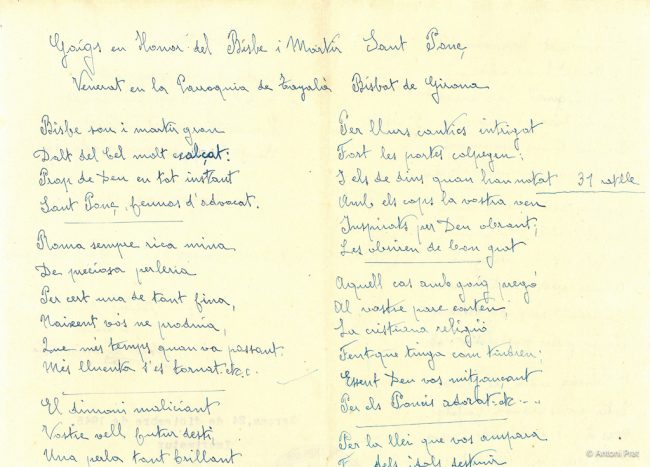 Goigs en Honor del Bisbe i Màrtir Sant Ponç
Venerat en la Parroquia de Tayalà Bisbat de Girona
Bisbe sou i martir gran
Dalt del Cel molt ensalçat:
Prop de Deu en tot instant
Sant Ponç, feunos d'advocat.
Roma sempre rica mina
De preciosa perleria
Per cert una de tant fina,
Naixent vós ne produïa,
Que més temps quan va passant.
Més lluenta s'es tornat. etc.
El dimoni maliciant
Vostre vell futur desti
Una perla tant brillant
Per llurs cantics intrigat
Fort les portes colpegeu;
I els de dins quan han notat 31 ratlle
Amb els cops la vostra veu
Inspirats per Deu obrant;
Les obrien de bon grat
Aquell cas amb goig pregó
Al vostre pare conteu;
La cristiana religió
Fent que tinga com tindreu;
Essent Deu vos mitjançant
Per els Poncis adorat. etc
Per la llei que vos ampara
dels idols destruir
© Antoni Prat